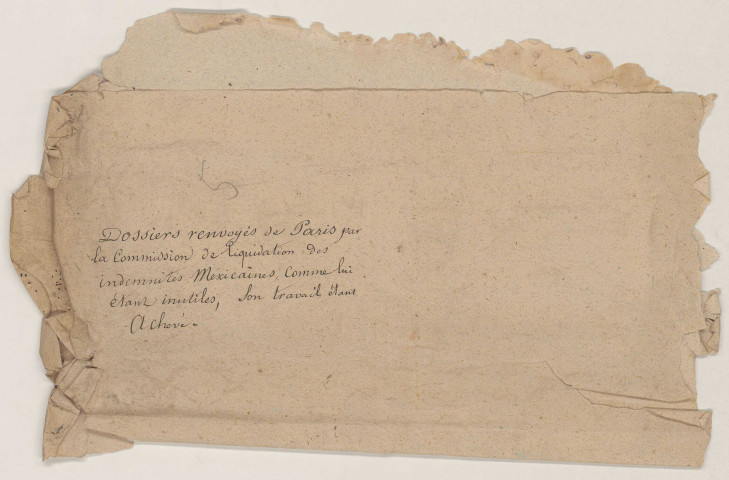 Dossiers renvoyés de Paris par
la Commission de Liquidation des
indemnités Mexicaines, Comme lui
étant inutiles, Son travail étant
Achevé.